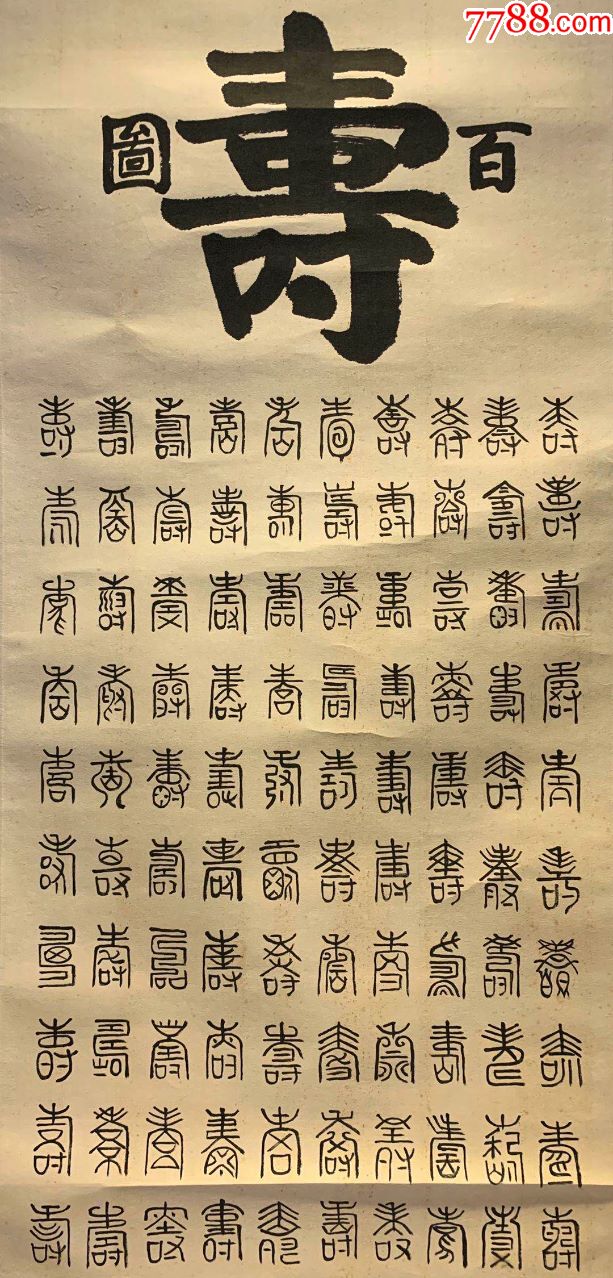 7788.com
百壽圖
壽壽壽壽壽壽壽壽壽壽
壽壽壽壽壽壽壽壽壽壽
壽壽壽壽壽壽壽壽壽壽
壽壽壽壽壽壽壽壽壽壽
壽壽壽壽壽壽壽壽壽壽
壽壽壽壽壽壽壽壽壽壽
壽壽壽壽壽壽壽壽壽壽
壽壽壽壽壽壽壽壽壽壽
壽壽壽壽壽壽壽壽壽壽
壽壽壽壽壽壽壽壽壽壽